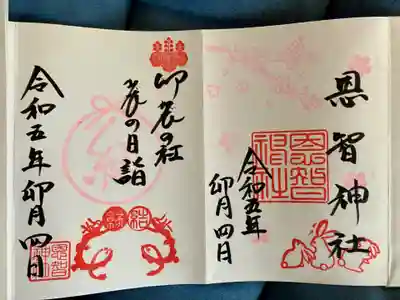 恩智神社
恩智
神社
令和五年
卯月四日
卯辰の社
辰の日詣
令和五年卯月四日
恩智
神社